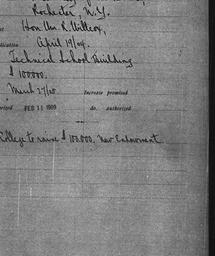 Rochester, N.Y.
Hon Wm. R. Willcox,
April 19/04.
Technical School Building
$ 100000.
March 27/05 Increase promised
FEB 11 1909 do. authorized
College to raise $ 100,000. New Endowment.